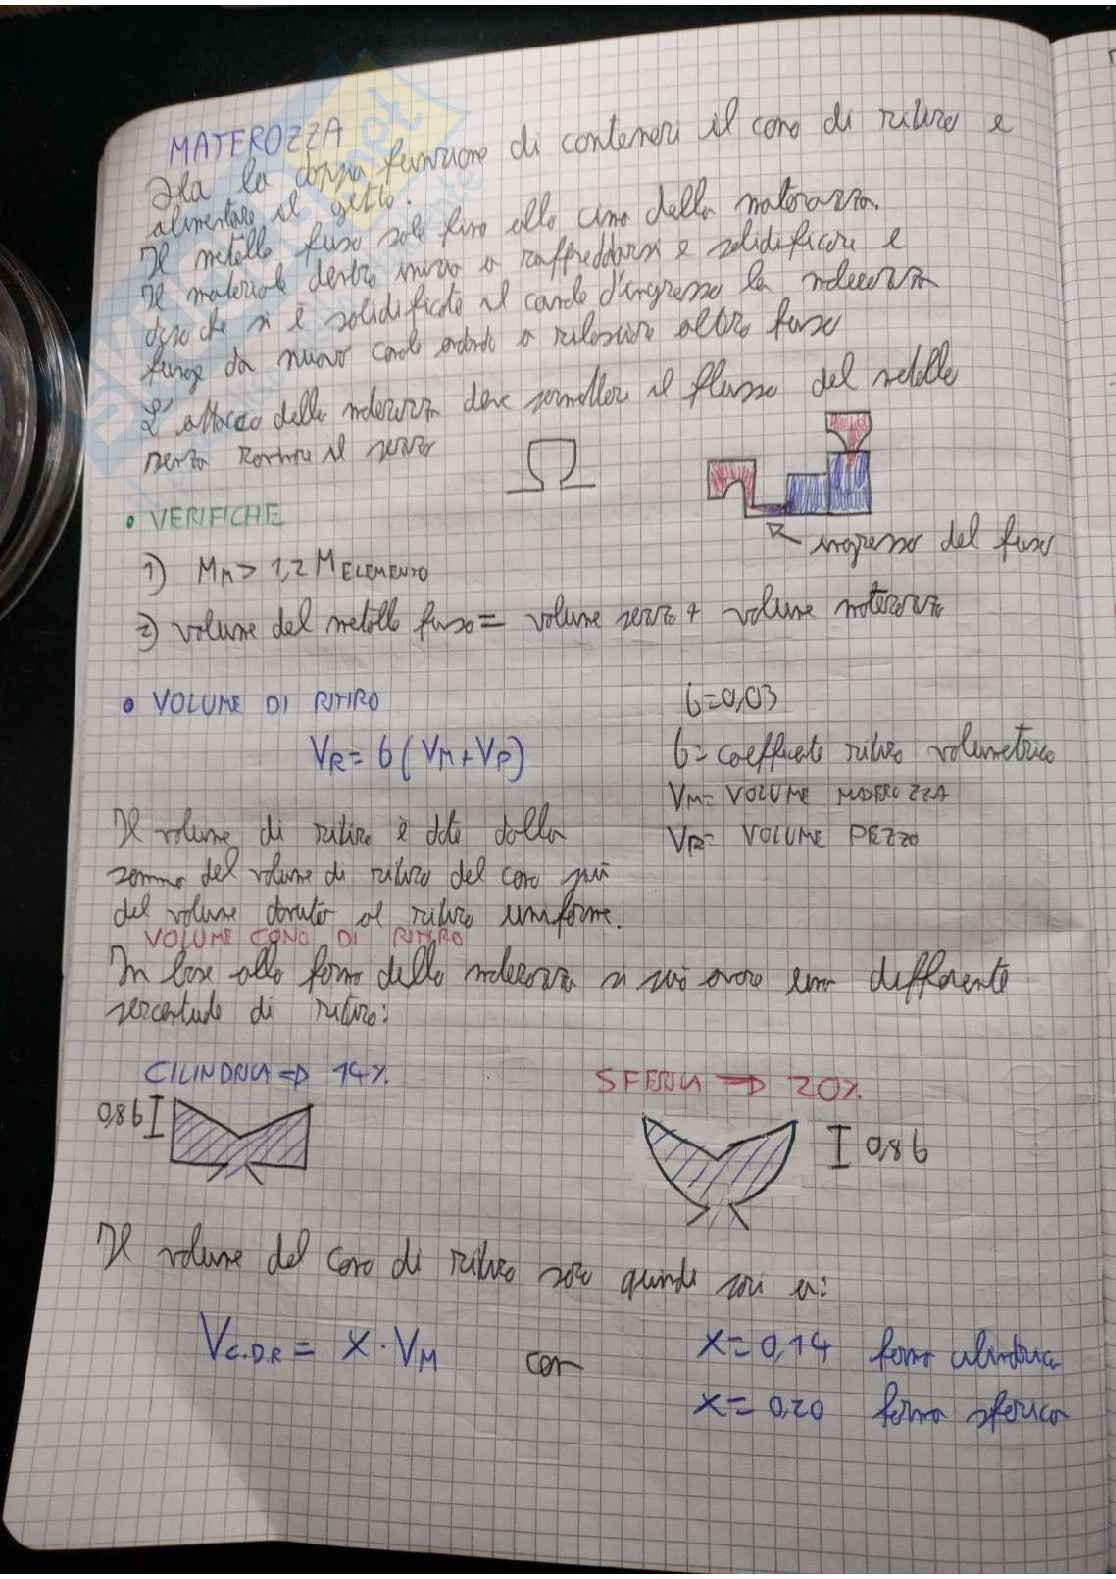 MATEROZZA
Ha la doppia funzione di contenere il cono di ritiro e
alimentare il getto.
Il metallo fuso sale fino alla cima della materozza.
Il materiale dentro inizia a raffreddarsi e solidificare e
dopo che si è solidificato il canale d'ingresso la materozza
funge da nuovo canale andando a rilasciare altro fuso
L'attacco della materozza deve permettere il flusso del metallo
senza rovinare il pezzo
ingresso del fuso
• VERIFICHE
1) MM > 1,2 MELEMENTO
2) volume del metallo fuso = volume pezzo + volume materozza
• VOLUME DI RITIRO
b=0,03
VR = b (VM + VP)
b = coefficiente ritiro volumetrico
VM = VOLUME MATEROZZA
VP = VOLUME PEZZO
Il volume di ritiro è dato dalla
somma del volume di ritiro del cono più
del volume dovuto al ritiro uniforme.
VOLUME CONO DI RITIRO
In base alla forma della materozza si può avere una differente
percentuale di ritiro:
CILINDRICA => 14%
SFERICA => 20%
0,86
0,86
Il volume del cono di ritiro sarà quindi pari a:
VC.D.R = X · VM con
X = 0,14 forma cilindrica
X = 0,20 forma sferica